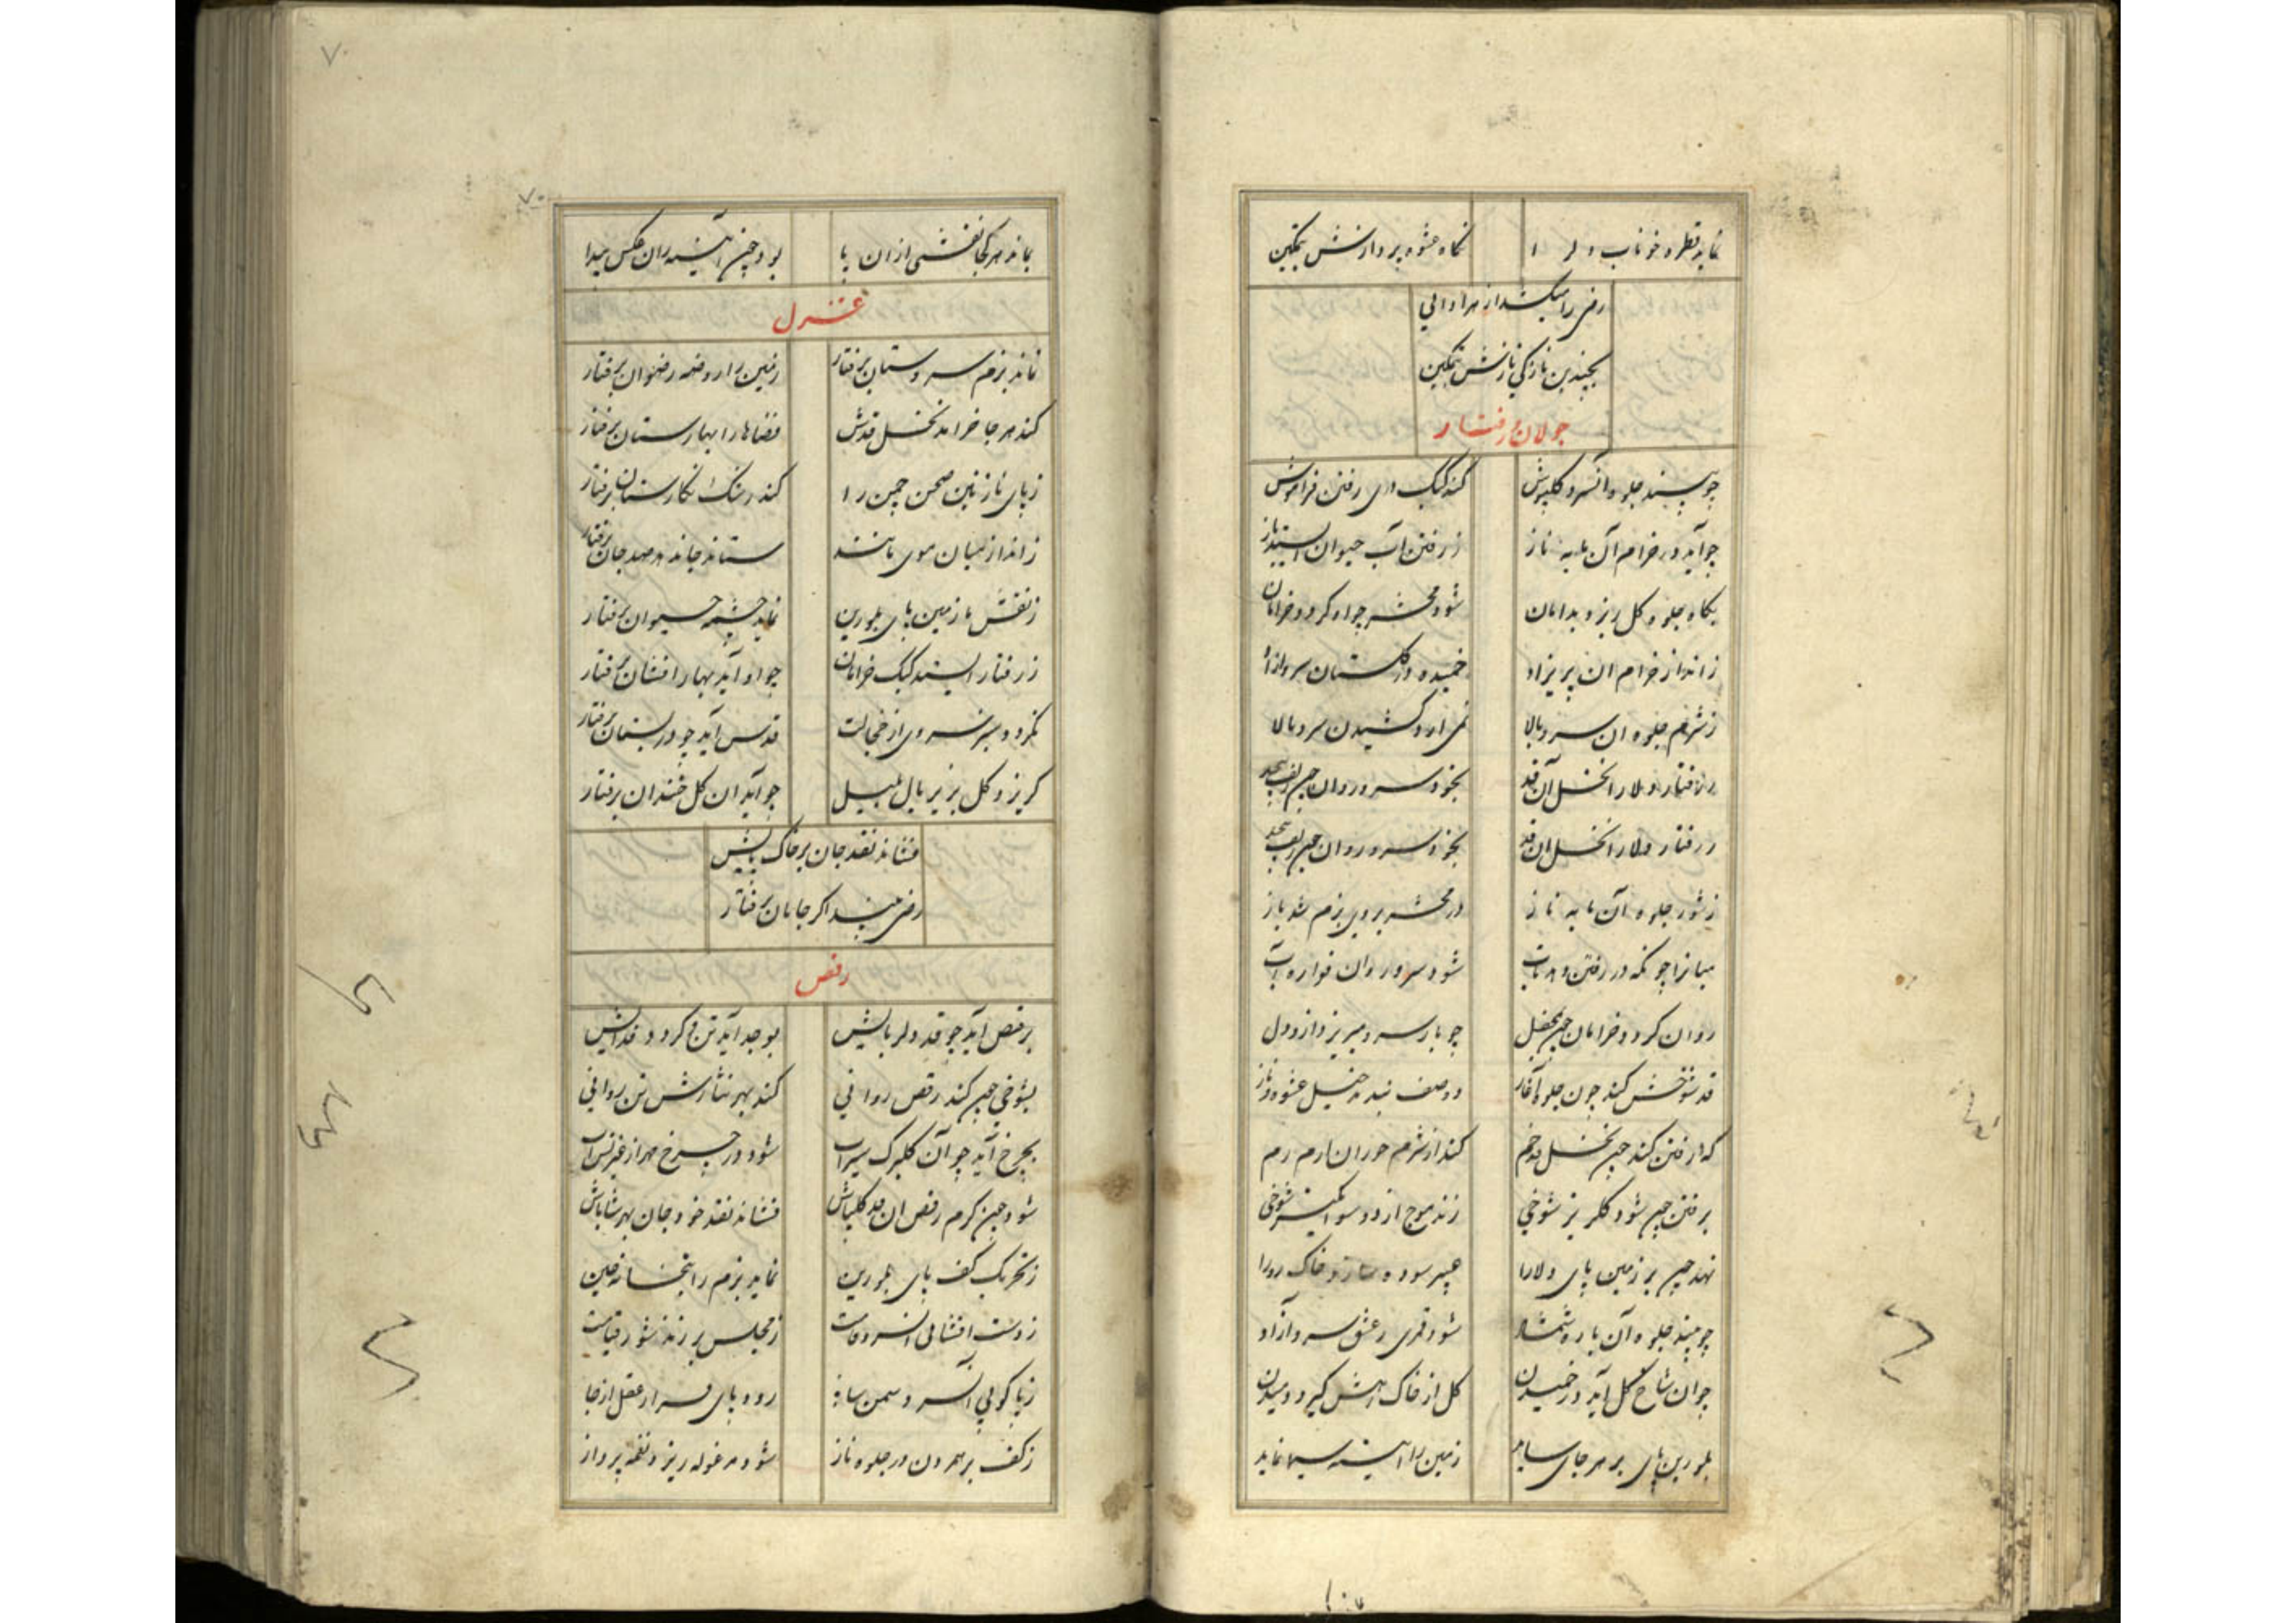 نماید قطره خوناب دل را نگاه عشوه پردازش بتمکین
رضی را میکشد از هر ادائی
بچندین نازکی نازش بتمکین
جولان رفتار
چو بیند جلوه آنسرو گلپوش کند کبک دری رفتن فراموش
چو آید در خرام آن مایه ناز ز رفتن آب حیوان ایستد باز
بگاه جلوه گل ریزد بدامان شود محشر چو او گردد خرامان
ز انداز خرام ان پریزاد خمیده در گلستان سرو آزاد
ز شرم جلوه ان سرو بالا نمی ارد کشیدن سرو بالا
ز رفتار دلارا نخل آن قد بخود سرو روان چون لعب پیچد
ز رفتار دلارا نخل ان قد بخود سرو روان چون لعب پیچد
ز شور جلوه آن مایه ناز در محشر بروی بزم شد باز
میانرا چونکه در رفتن دهد تاب شود سرو روان فواره آب
روان گردد خرامان چون بمحفل چو بار سرو میریزد ازو دل
قد شوخش کند چون جلوه آغاز دو صف بندد خیل عشوه و ناز
که رفتن کند چون نخل قد خم کند از شرم حوران ارم رم
برفتن چون شود گلریز شوخی زند موج از دو سو انگیز شوخی
نهد چون بر زمین پای دلارا عبیر سوده سازد خاک ره را
چو بیند جلوه آن یار شمشاد شود قمری ز عشق سرو آزاد
چو ان شاخ گل آید در خمیدن گل از خاک رهش گیرد دمیدن
بلورین پای بر هر جای ساید زمین را آئینه سیما نماید
۷۰
۷۰
بماند هر کجا نقشی از ان پا بود چون آئینه زان عکس پیدا
غزل
نماند بزم سروستان برفتار زمین را روضه رضوان برفتار
کند هر جا خرامد نخل قدش فضاها را بهارستان برفتار
ز پای نازنین صحن چمن را کند رشک نگارستان برفتار
ز انداز میان موی مانند ستاند جان دهد جان برفتار
ز نقش بر زمین پای بلورین نماید چشمه حیوان برفتار
ز رفتار ایستد کبک خرامان چو او آید بهار افشان برفتار
نگردد سبز سرو از خجالت قدش آید چو در بستان برفتار
گریزد گل بزیر بال بلبل چو آید ان گل خندان برفتار
فشاند نقد جان بر خاک پایش
رضی بیند اگر جانان برفتار
رقص
برقص آید چو قد دلربایش بوجد آید تن و گردد فدایش
بشوخی چون کند رقص روانی کند بهر نثارش تن روانی
بچرخ آید چو آن گلبرگ سیراب شود در چرخ مهر از غیرتش آب
شود چون گرم رقص ان قد گلپاش فشاند نقد خود جان بهر شاباش
ز تحریک کف پای بلورین نماید بزم را بتخانه چین
ز دست افشانی آن سرو قامت ز مجلس بر زند شور قیامت
ز پا کوبی آن سرو سمن سا رود پای قرار عقل از جا
ز کف بر هم زدن در جلوه ناز شود مرغوله ریز و نغمه پرداز